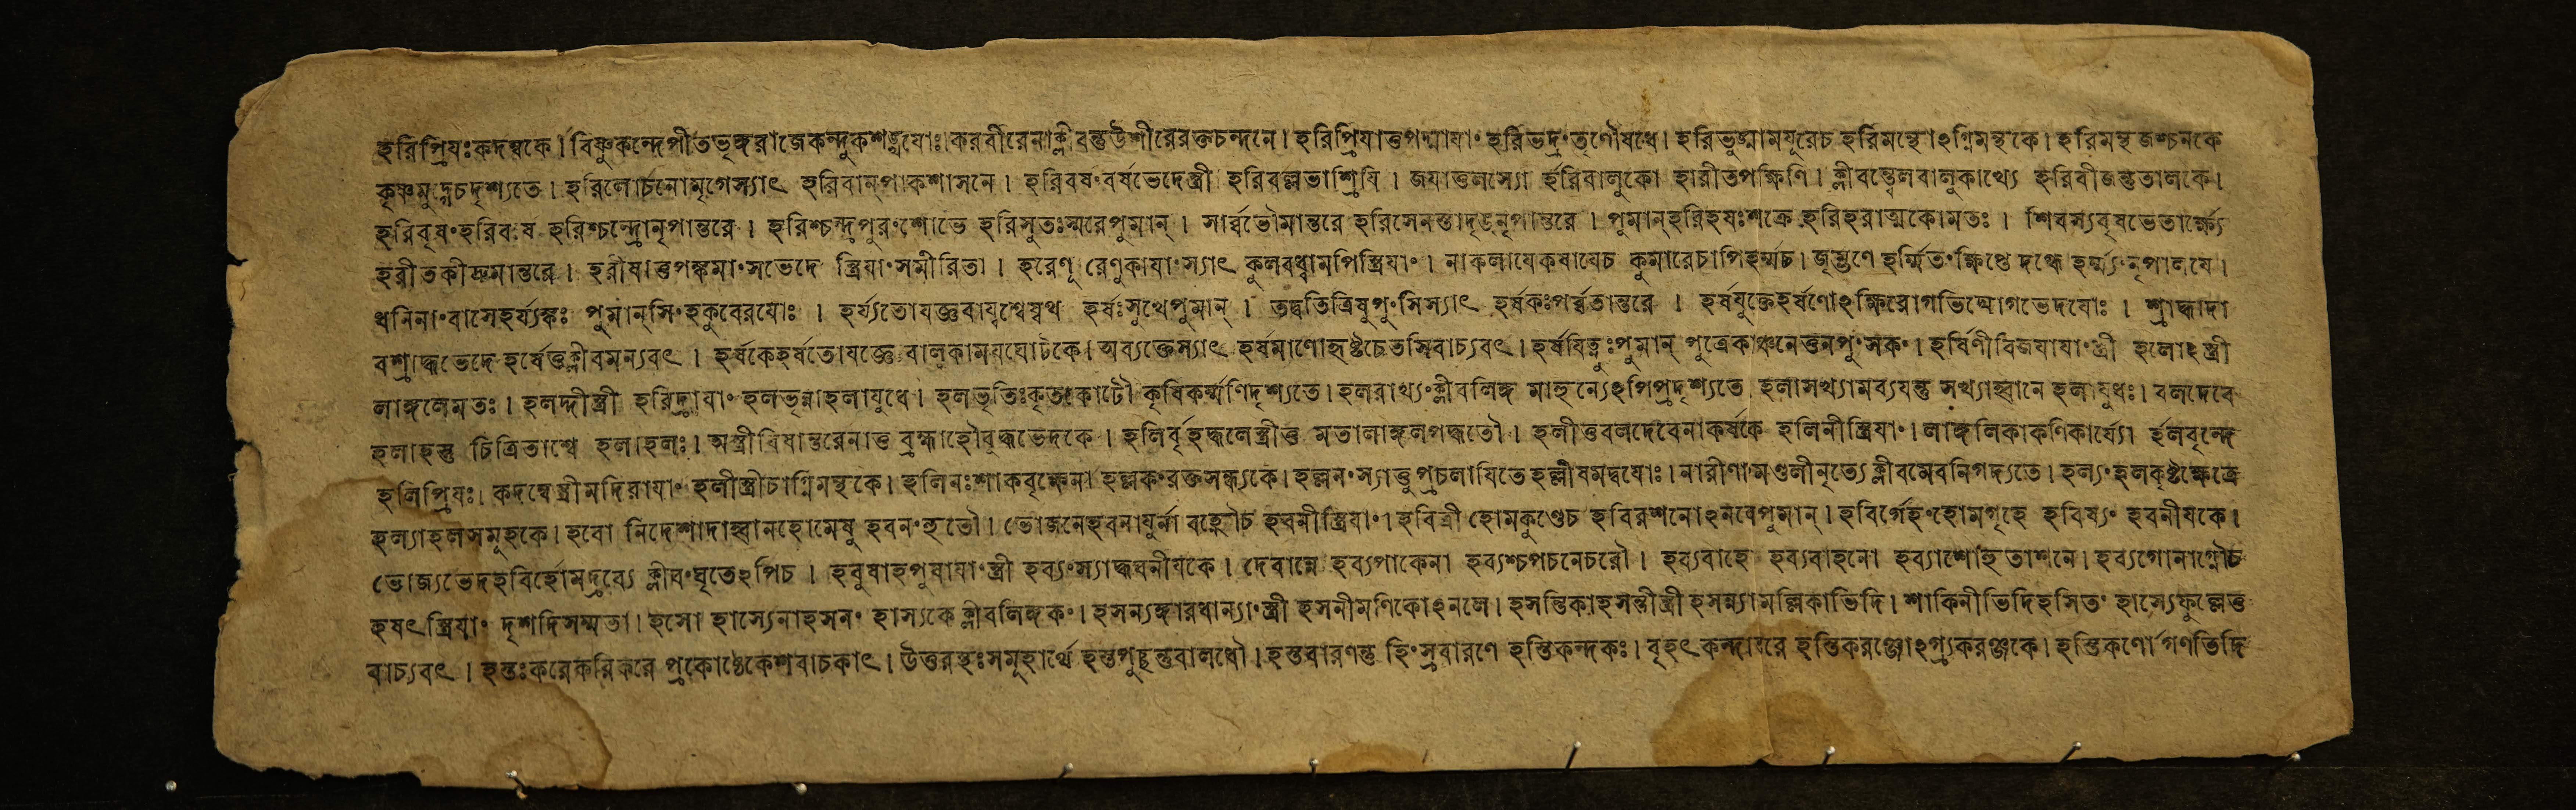 হরিপ্রিযঃকদম্বকে। বিষ্ণুকন্দেপীতভৃঙ্গরাজেকন্দুকশঙ্খযোঃ। করবীরেনাক্লীবন্তুউশীরেরক্তচন্দনে। হরিপ্রিযাত্তপদ্মাযাং হরিভদ্রংতৃণৌষধে। হরিভুঙ্মামযুরেচ হরিমন্থোঽগ্নিমন্থকে। হরিমন্থজশ্চনকে
কৃষ্ণমুদ্গেচদৃশ্যতে। হরিলোচনোমৃগেস্যাৎ হরিবান্পাকশাসনে। হরিবর্ষংবর্ষভেদেস্ত্রী হরিবল্লভাশ্রিযি। জযাত্তলস্যো র্হরিবালুকো হারীতপক্ষিণি। ক্লীবন্ত্বেলবালুকাখ্যে হরিবীজন্তুতালকে।
হরিবৃষংহরিবর্ষে হরিশ্চন্দ্রোনৃপান্তরে। হরিশ্চন্দ্রপুরংশোভে হরিসুতঃস্মরেপুমান্। সার্ব্বভৌমান্তরে হরিসেনস্তাদৃঙনৃপান্তরে। পুমান্হরিহযঃশক্রে হরিহরাত্মকোমতঃ। শিবস্যবৃষভেতার্ক্ষ্যে
হরীতকীদ্রুমান্তরে। হরীষাত্তপঙ্কমাংসভেদে স্ত্রিযাংসমীরিতা। হরেণূ রেণুকাযাংস্যাৎ কুলবধ্বামপিস্ত্রিযাং। নাকলাযেকষাযেচ কুমারেচাপিহর্ম্মচ। জৃম্ভণে হর্ম্মিতংক্ষিপ্তে দগ্ধে হর্ম্ম্যংনৃপালযে।
ধনিনাংবাসেহর্য্যঙ্কঃ পুমান্সিংহকুবেরযোঃ। হর্য্যতোযজ্ঞবায্বশ্বেষ্বথ হর্ষঃসুখেপুমান্। তদ্বতিত্রিষুপুংসিস্যাৎ হর্ষকঃপর্ব্বতান্তরে। হর্ষযুক্তেহর্ষণোঽক্ষিরোগভিদ্যোগভেদযোঃ। শ্রাদ্ধাদা
বশ্রাদ্ধভেদে হর্ষেত্তক্লীবমন্যবৎ। হর্ষকেহর্ষতোযজ্ঞে বালকামযঘোটকে। অব্যক্তেস্যাৎ হর্ষমাণোহৃষ্টচেতসিবাচ্যবৎ। হর্ষযিত্নুঃপুমান্ পুত্রেকাঞ্চনেত্তনপুংসকং। হর্ষিণীবিজযাযাংস্ত্রী হলোঽস্ত্রী
লাঙ্গলেমতঃ। হলদ্দীস্ত্রী হরিদ্রাযাং হলভৃন্নাহলাযুধে। হলভৃতিঃকৃতকোটৌ কৃষিকর্ম্মণিদৃশ্যতে। হলরাখ্যংক্লীবলিঙ্গ মাহুন্যেঽপিপ্রদৃশ্যতে হলাসখ্যামব্যযন্তু সখ্যাহ্বানে হলাযুধঃ। বলদেবে
হলাহস্তু চিত্রিতাশ্বে হলাহলঃ। অস্ত্রীবিষান্তরেনাত্ত ব্রহ্মাহৌবুদ্ধভেদকে। হলির্বৃহদ্ধলেস্ত্রীত্ত মতালাঙ্গলপদ্ধতৌ। হলীত্তবলদেবেনাকর্ষকে হলিনীস্ত্রিযাং। লাঙ্গলিকাকণিকার্য্যো র্হলবৃন্দে
হলিপ্রিযঃ। কদম্বেস্ত্রীমদিরাযাং হলীস্ত্রীচাগ্নিমন্থকে। হলিনঃশাকবৃক্ষেনা হল্লকংরক্তসন্ধ্যকে। হল্লনংস্যাত্তুপ্রচলাযিতে হল্লীষমদ্বযোঃ। নারীণাংমণ্ডলীনৃত্যে ক্লীবমেবনিগদ্যতে। হল্যংহলকৃষ্টক্ষেত্রে
হল্যাহলসমূহকে। হবো নিদেশাদাহ্বানহোমেষু হবনংহুতৌ। ভোজনেহবনাযুর্না বহ্নৌচ হবনীস্ত্রিযাং। হবিত্রী হোমকুণ্ডেচ হবিরশনোঽনলেপুমান্। হবির্গেহংহোমগৃহে হবিষ্যং হবনীযকে।
ভোজ্যভেদহবির্হোমদ্রব্যে ক্লীবংঘৃতেঽপিচ। হবুষাহপুষাযাংস্ত্রী হব্যংস্যাদ্ধবনীযকে। দেবান্নে হব্যপাকেনা হব্যশ্চপচনেচরৌ। হব্যবাহে হব্যবাহনো হব্যাশোহুতাশনে। হব্যগোনাগ্নৌচ
হষৎস্ত্রিযাং দৃশদিসম্মতা। হসো হাস্যেনাহসনং হাস্যকে ক্লীবলিঙ্গকং। হসন্যঙ্গারধান্যাংস্ত্রী হসনীমণিকোঽনলে। হসন্তিকাহসন্তীস্ত্রী হসন্ন্যামল্লিকাভিদি। শাকিনীভিদিহসিতং হাস্যেফুল্লেত্ত
বাচ্যবৎ। হস্তঃকরেকরিকরে প্রকোষ্ঠেকেশবাচকাৎ। উত্তরস্থঃসমূহার্থে হস্তপুচ্ছন্তুবালধৌ। হস্তবারণন্তু হিংস্রবারণে হস্তিকন্দকঃ। বৃহৎকন্দান্তরে হস্তিকরঞ্জোঽগ্র্যকরঞ্জকে। হস্তিকর্ণোগণভিদি